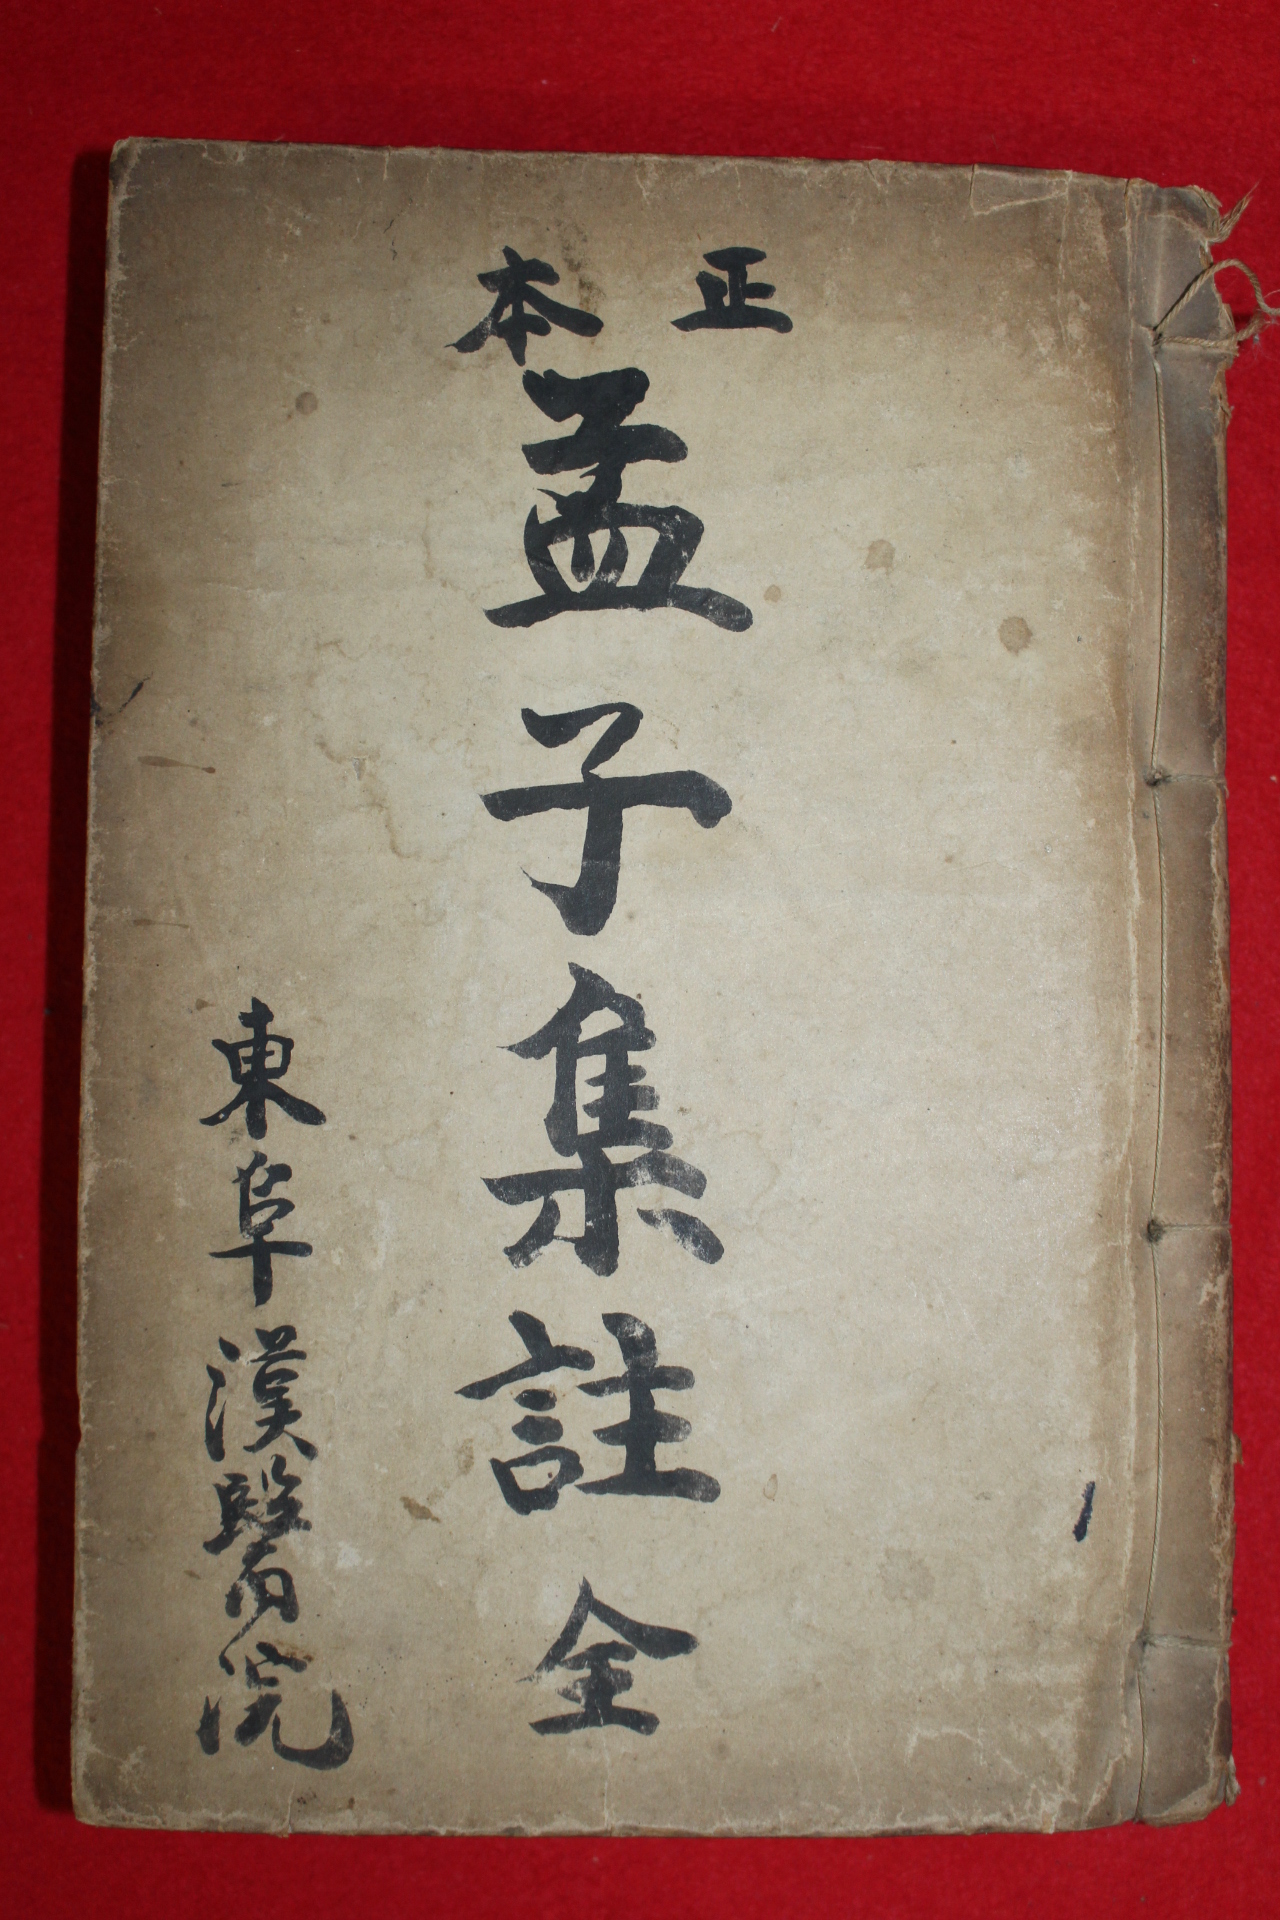 正本
孟子集註全
東阜漢醫院